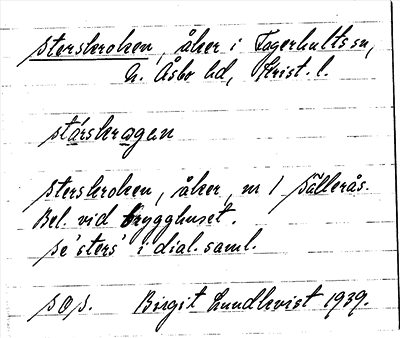 sterskroken, åker i Fagerhults sn,
N. Åsbo hd, Krist. l.
stárskrogen
sterskroken, åker, nr 1 Sällerås.
Bel. vid brygghuset.
se 'sters' i dial. saml.
sos. Birgit Lundkvist 1939.